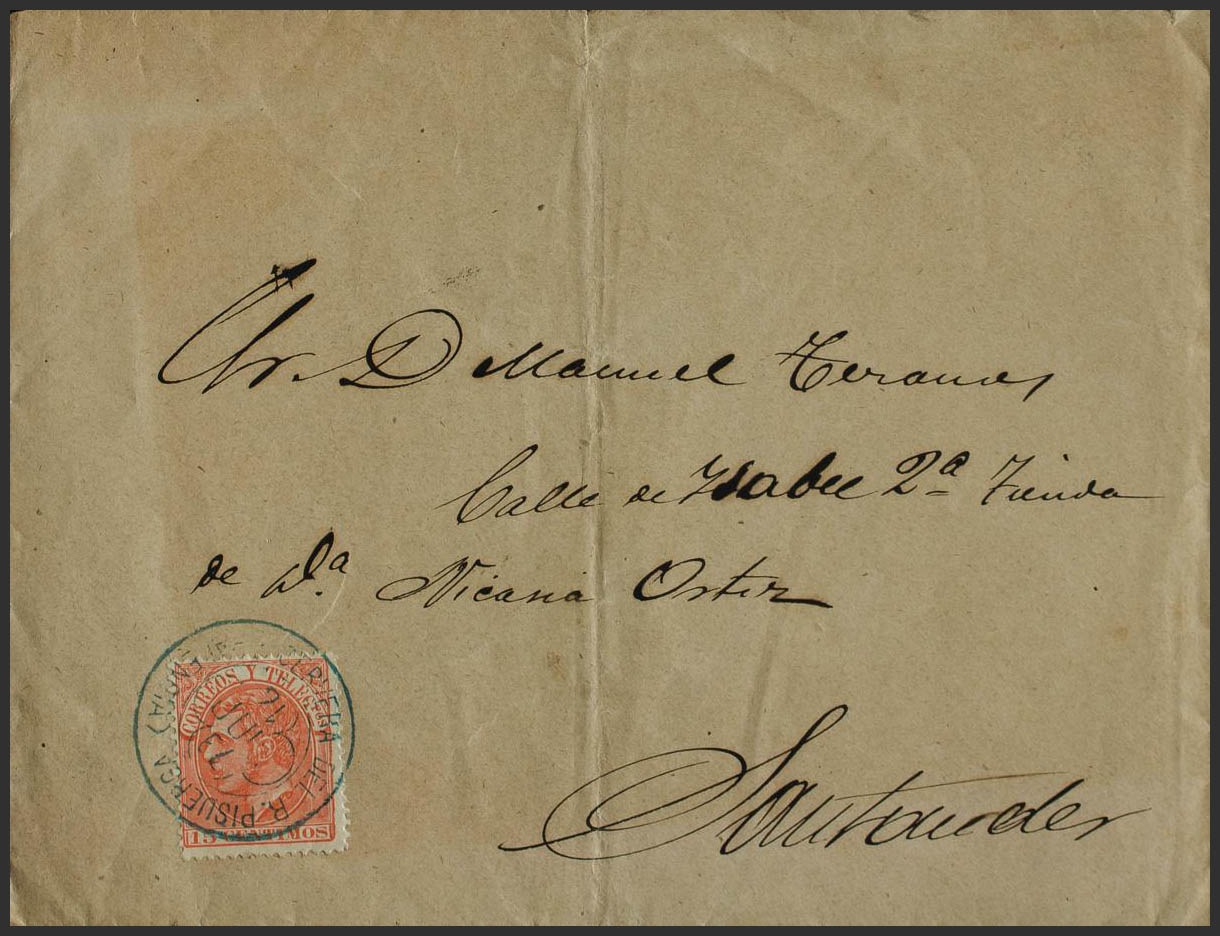 Sr. D Manuel Teranes
Calle de Ysabel 2ª Tienda
de Dª. Nicasia Ortiz
Santander
CORREOS Y TELEGFOS
15 CENTIMOS
CERVERA DEL R. PISUERGA